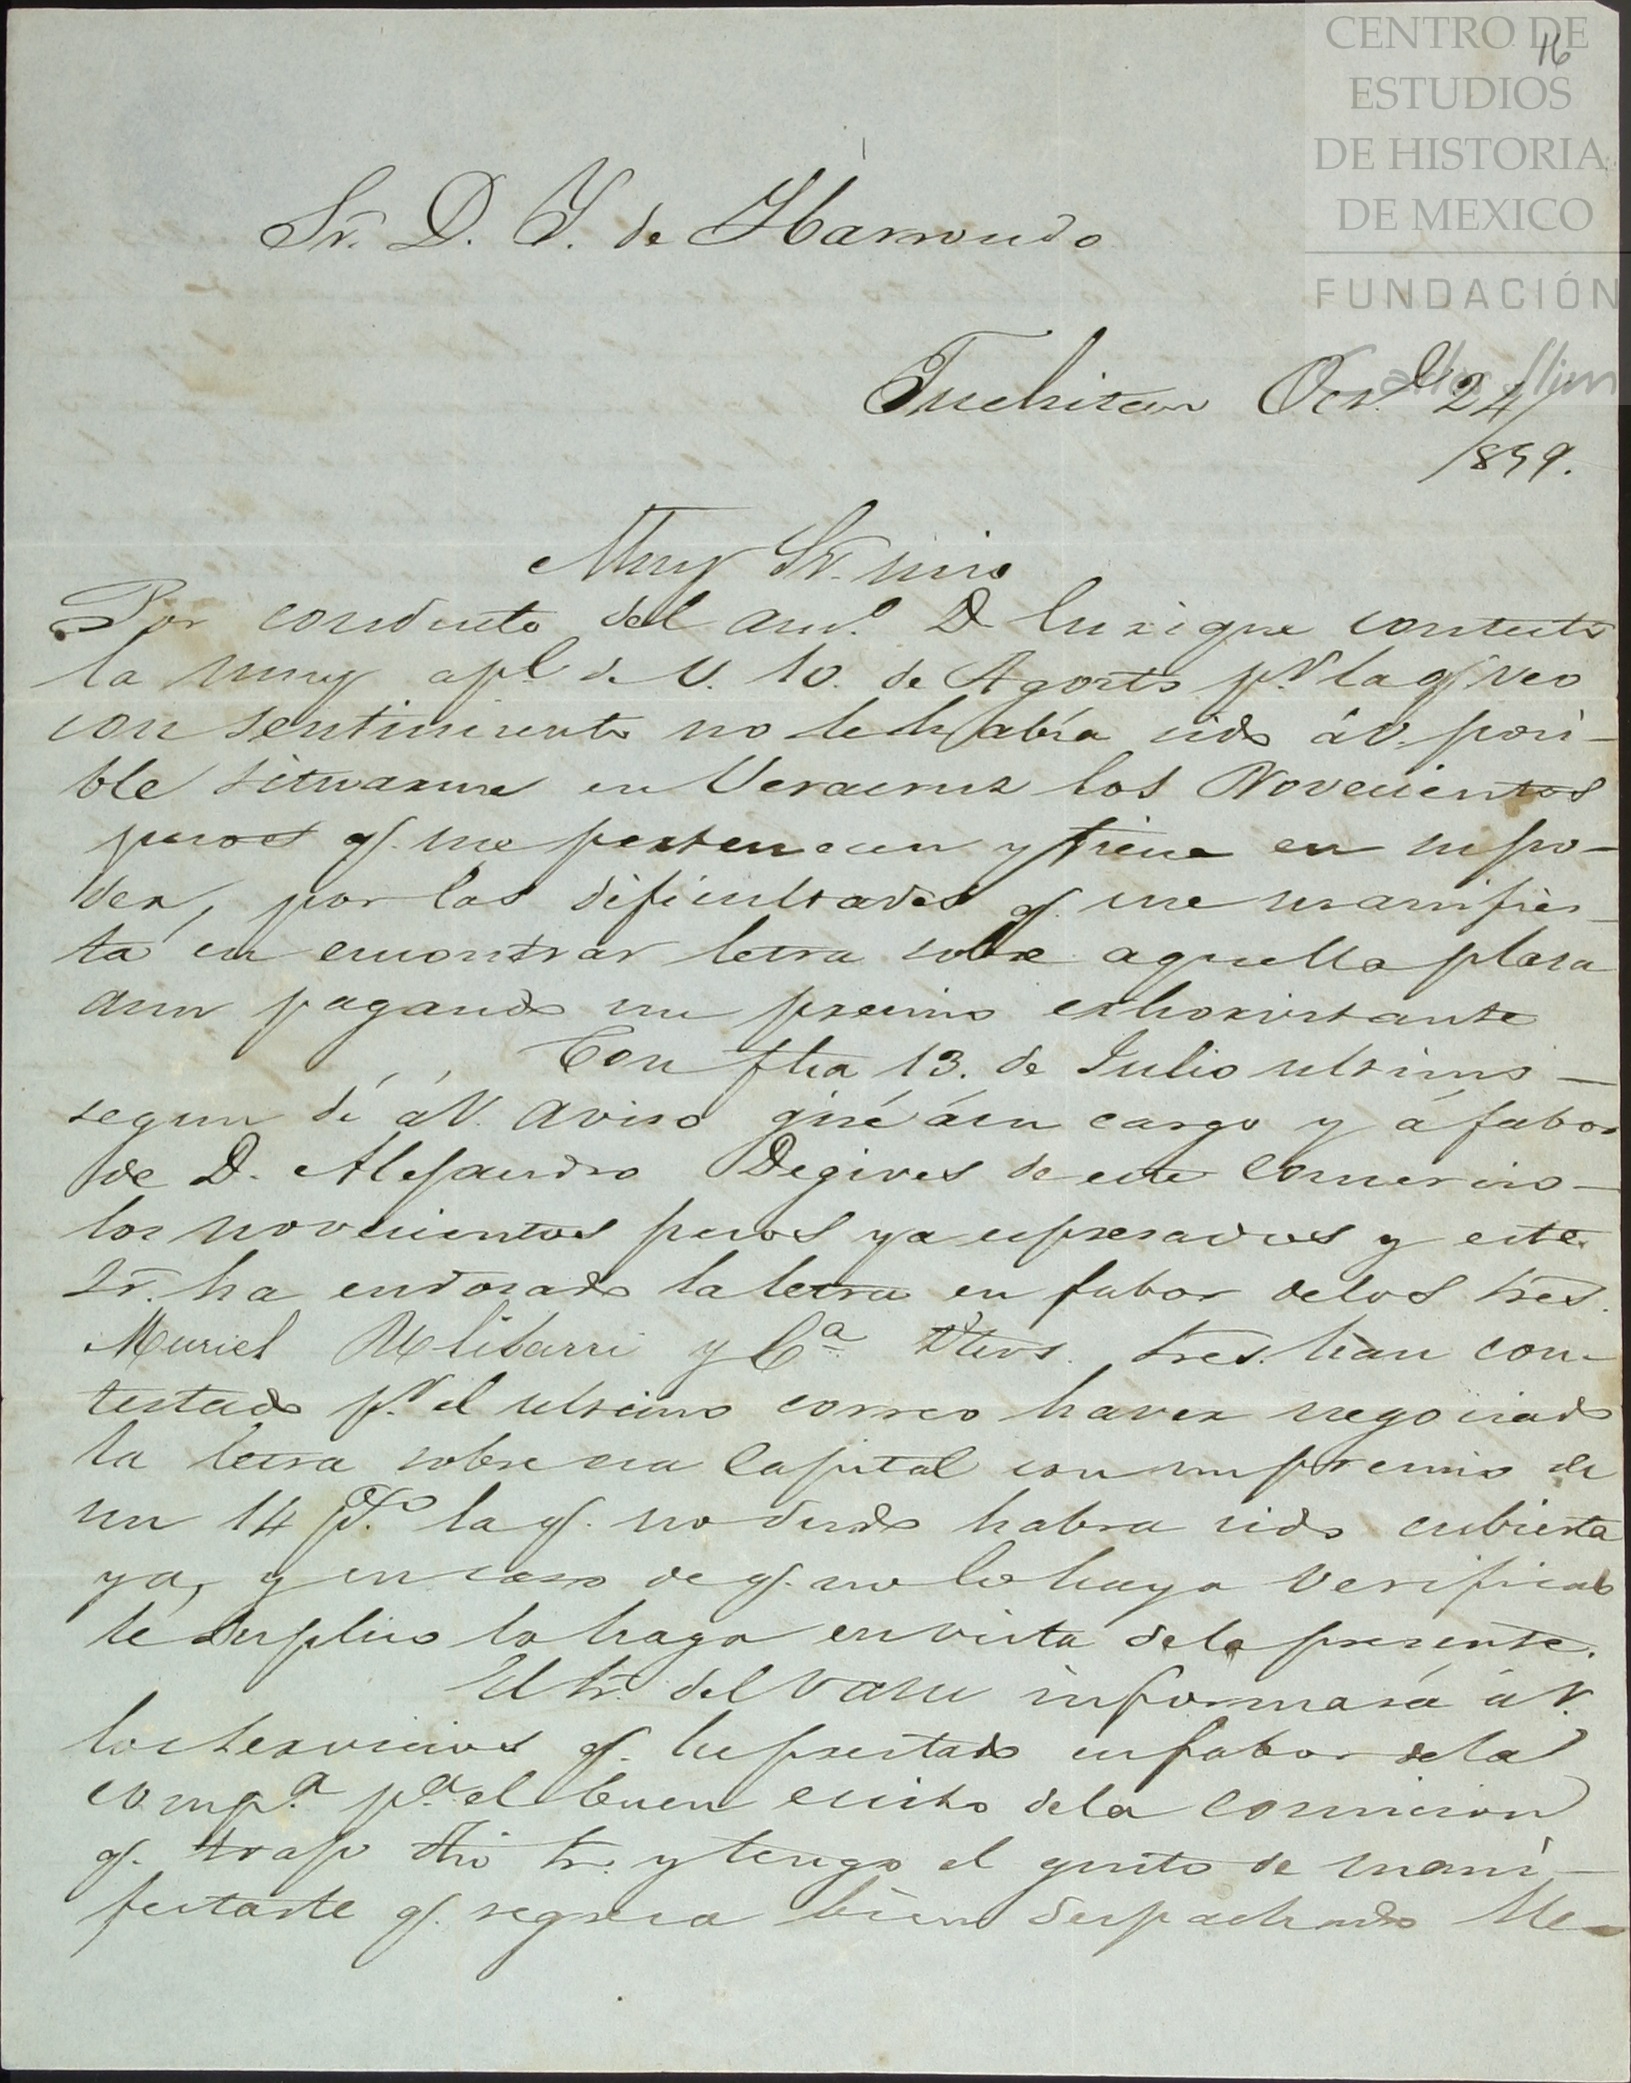 CENTRO DE
ESTUDIOS
DE HISTORIA
DE MEXICO
FUNDACIÓN
Carlos Slim
16
Sr. D. Y. de Ibarrondo
Juchitan Oct. 24/
1859.
Muy Sr. mio
Por conducto del am.º D contesto
la muy apl. de V. 10. de Agosto p.r la q. veo
con sentimiento no le habia sido á V. posi-
ble situarme en Veracruz los Novecientos
pesos q. me pertenecen y tiene en su po-
der, por las dificultades q. me manifies-
ta en encontrar letra sobre aquella plasa
aun pagando un premio exhorvitante
Con fha 13. de Julio ultimo -
segun dí á V. aviso giré á su cargo y á fabor
de D. Alejandro Degives de este Comercio -
los novecientos pesos ya espresados y este
Sr. ha endosado la letra en fabor de los Sres.
Muriel Ulibarri y Cª dhos. Sres. han con-
testado p.r el ultimo correo haver negociado
la letra sobre esa Capital con un premio de
un 14 p.% la q. no dudo habra sido cubierta
ya, y en caso de q. no lo haya verificado
le suplico lo haga en vista de la presente.
El Sr. del informará á V.
los servicios q. he prestado en fabor de la
comp.ª p.ª el buen exito de la comision
q. trajo dho Sr. y tengo el gusto de mani-
festarle q. regresa bien despachado Me